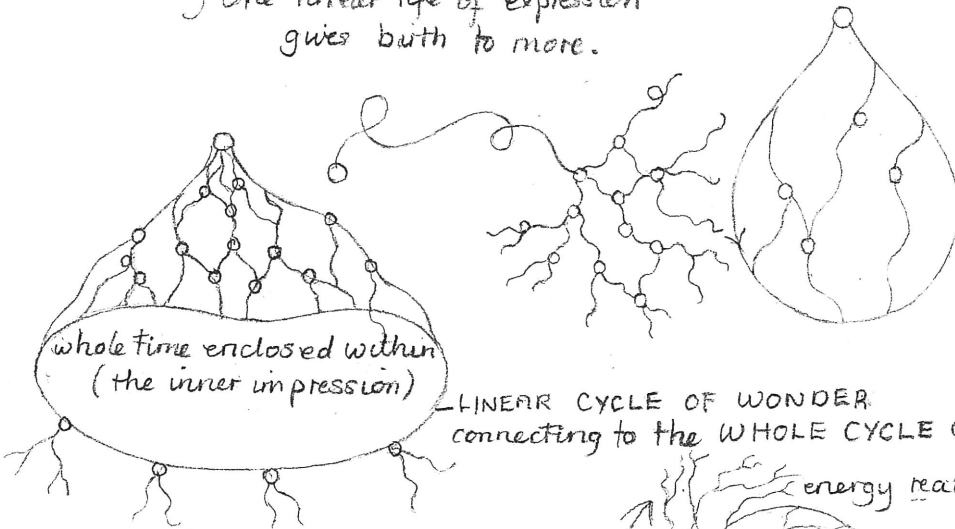 One linear life of expression
gives birth to more.
whole Time enclosed within
(the inner impression)
LINEAR CYCLE OF WONDER
connecting to the WHOLE CYCLE
energy